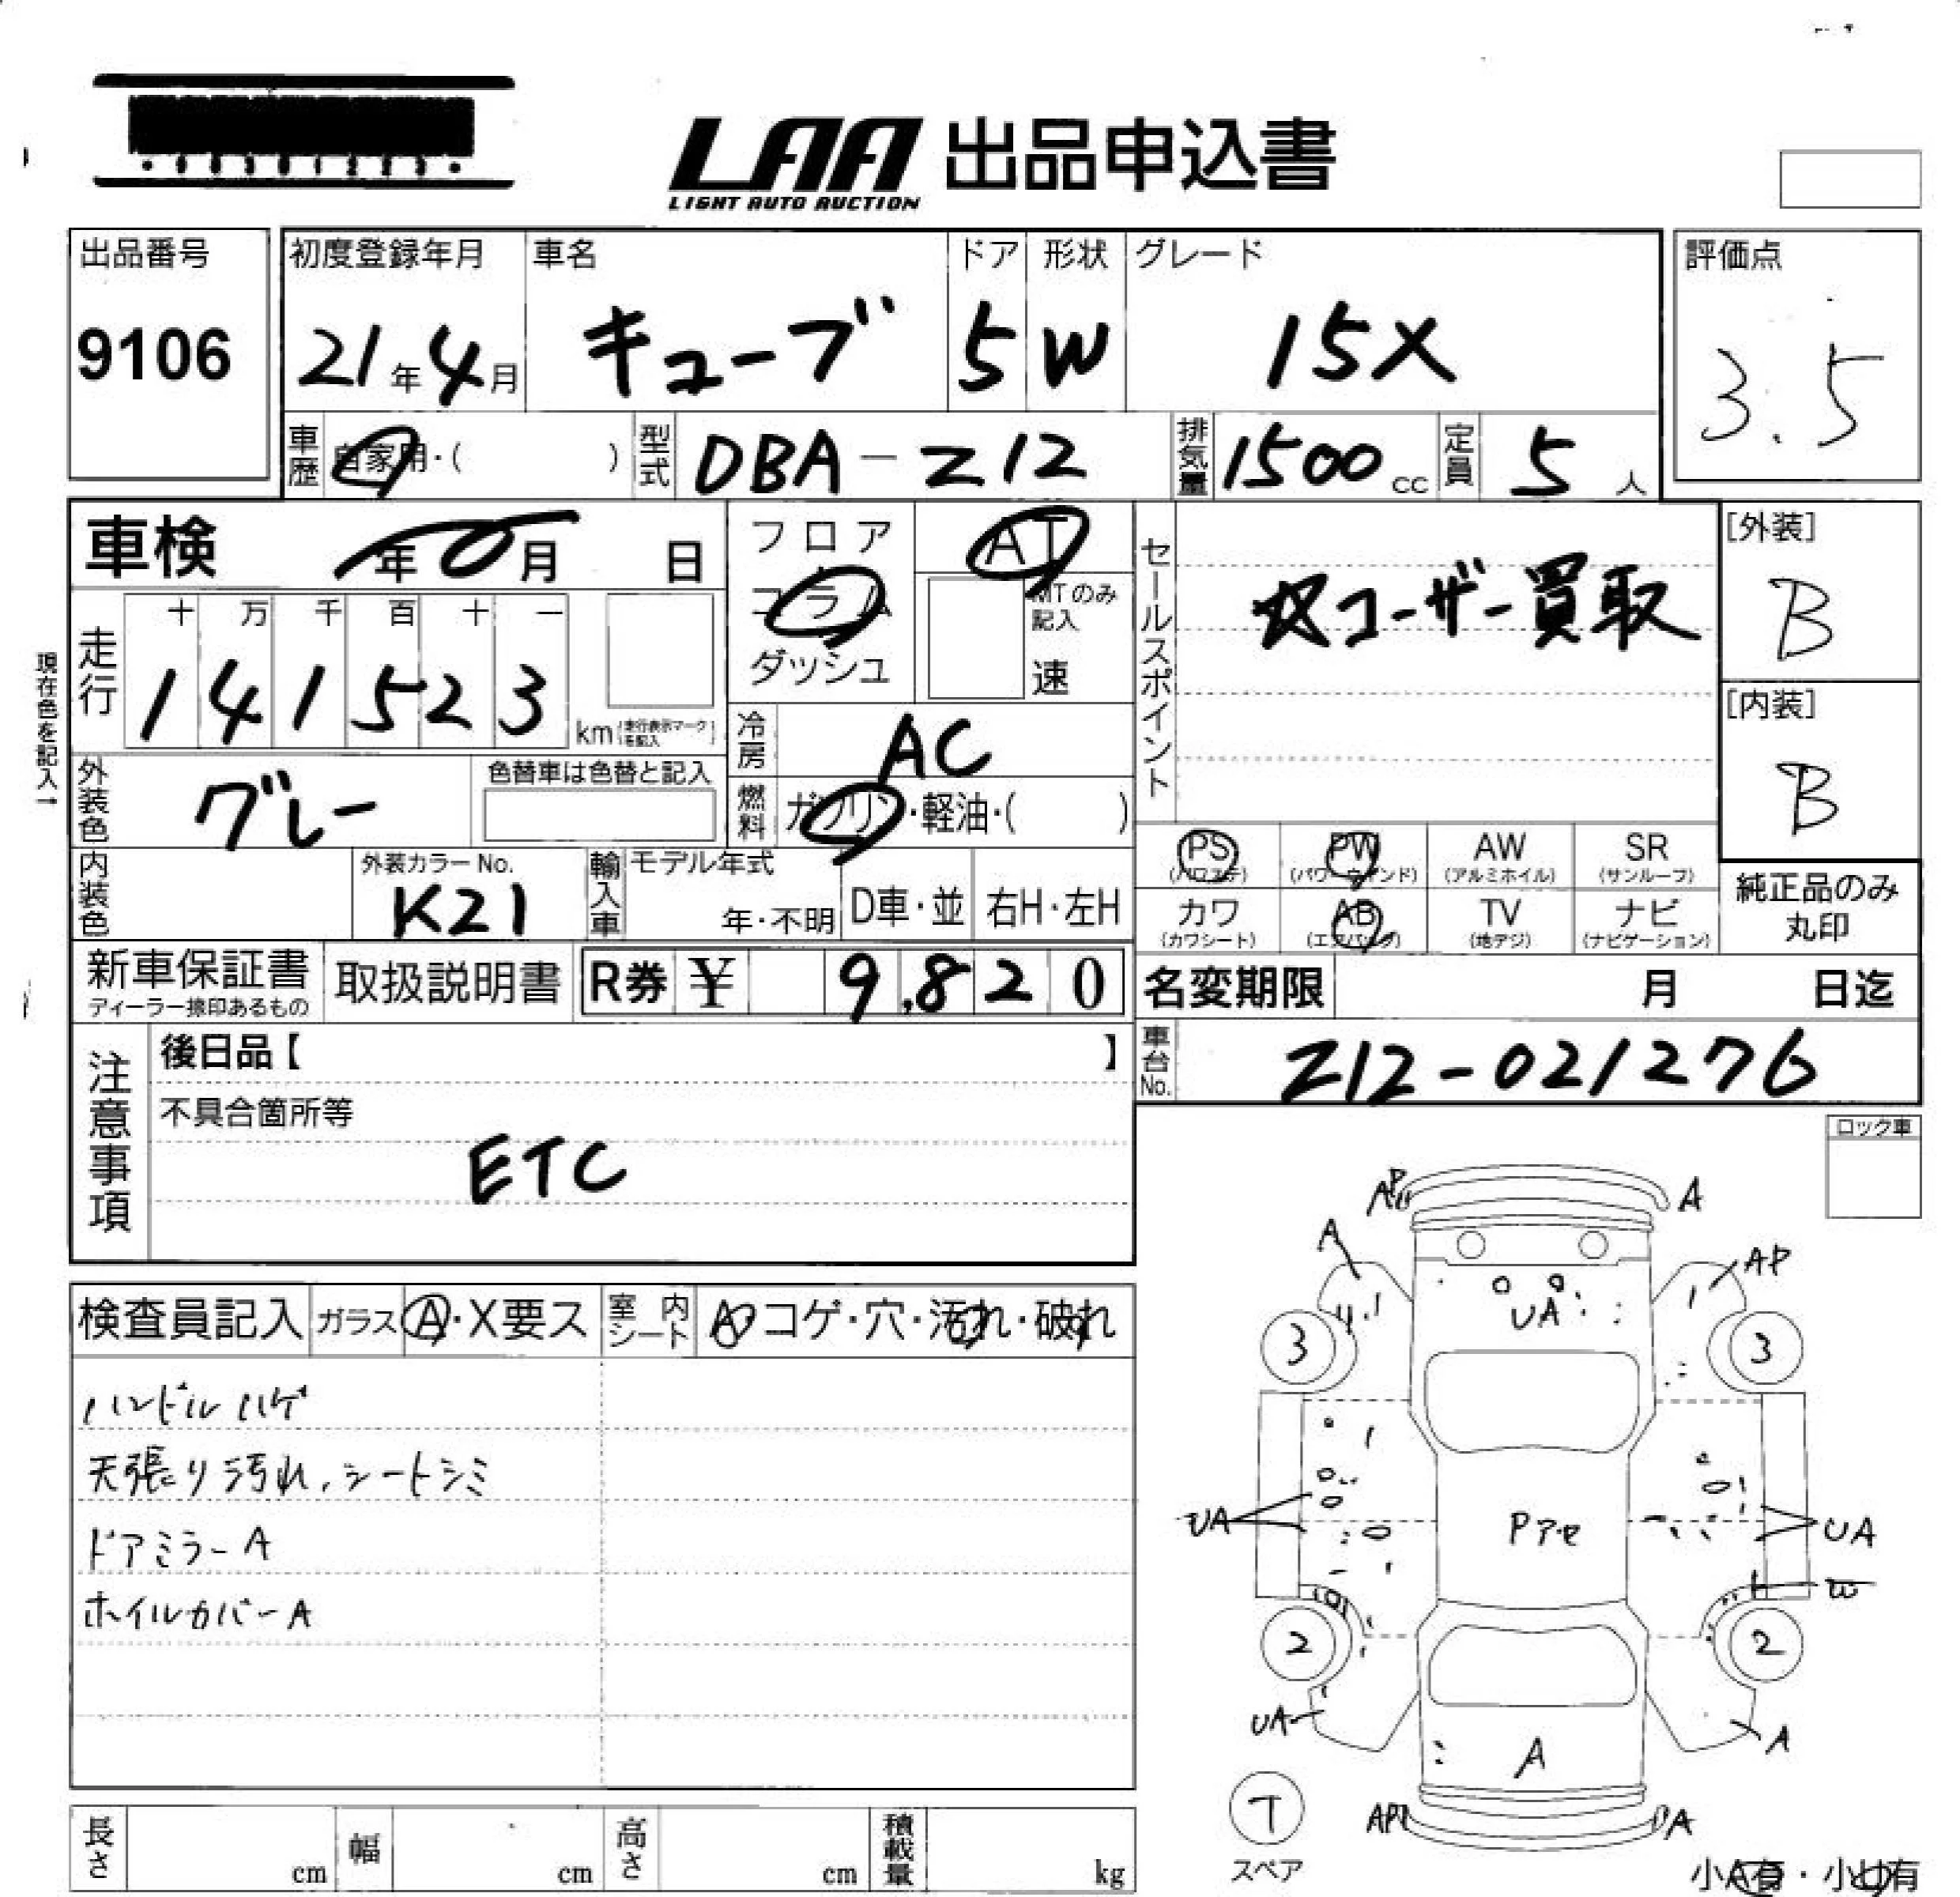 LAA 出品申込書
LIGHT AUTO AUCTION
出品番号
9106
初度登録年月
21年4月
車名
キューブ
ドア
5
形状
W
グレード
15X
評価点
3.5
車歴
自家用・( )
型式
DBA-Z12
排気量
1500cc
定員
5人
車検 年 月 日
フロア
コラム
ダッシュ
AT
MTのみ記入
速
セールスポイント
☆ユーザー買取
[外装]
B
[内装]
B
現在色を記入→
走行
十 万 千 百 十 一
1 4 1 5 2 3 km
(走行表示マークを記入)
冷房
AC
外装色
グレー
色替車は色替と記入
燃料
ガソリン・軽油・( )
内装色
外装カラーNo.
K21
輸入車
モデル年式
年・不明
D車・並
右H・左H
PS
(パワステ)
PW
(パワーウインド)
AW
(アルミホイル)
SR
(サンルーフ)
カワ
(カワシート)
AB
(エアバッグ)
TV
(地デジ)
ナビ
(ナビゲーション)
純正品のみ
丸印
新車保証書
ディーラー捺印あるもの
取扱説明書
R券 ¥ 9,820
名変期限 月 日迄
車台No.
Z12-021276
注意事項
後日品【 】
不具合箇所等
ETC
ロック車
検査員記入
ガラス A・X要ス
室内シート
A・コゲ・穴・汚れ・破れ
ハンドルハゲ
天張り汚れ、シートシミ
ドアミラーA
ホイルカバーA
AP
A
A
AP
UA
3
3
UA
Pアセ
UA
W
2
2
UA
A
A
T
スペア
AP
A
小A有・小U有
長さ
cm
幅
cm
高さ
cm
積載量
kg